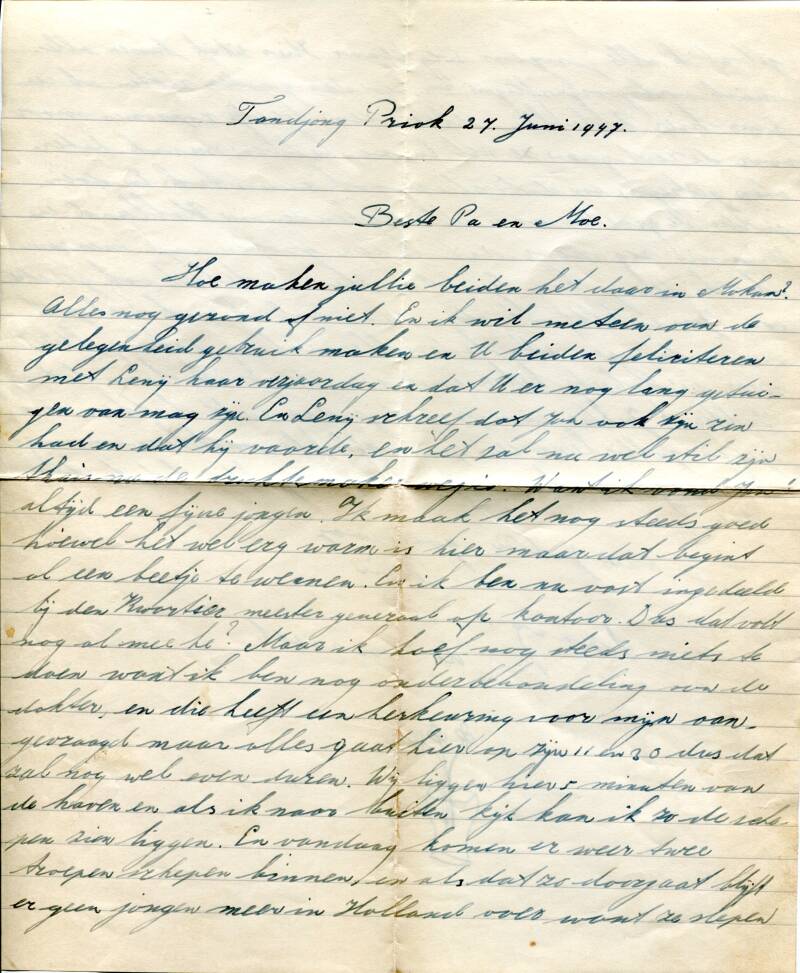 Tandjong Priok 27. Juni 1947.
Beste Pa en Moe.
Hoe maken jullie beiden het daar in Mokum?
Alles nog gezond of niet. En ik wil meteen van de
gelegenheid gebruik maken en U beiden feliciteren
met Lenij haar verjaardag en dat U er nog lang getui-
gen van mag zijn. En Lenij schreef dat Jan ook zijn zin
had en dat hij vaarde, en het zal nu wel stil zijn
thuis nu de drukte maker weg is. Want ik vond Jan
altijd een fijne jongen. Ik maak het nog steeds goed
hoewel het wel erg warm is hier maar dat begint
al een beetje te wennen. En ik ben nu vast ingedeeld
bij den Kwartier meester generaal op kantoor. Dus dat valt
nog al mee hè? Maar ik hoef nog steeds niets te
doen want ik ben nog onder behandeling van de
dokter, en die heeft een herkeuring voor mijn aan-
gevraagd maar alles gaat hier op zijn 11 en 30 dus dat
zal nog wel even duren. Wij liggen hier 5 minuten van
de haven en als ik naar buiten kijk kan ik zo de sche-
pen zien liggen. En vandaag komen er weer twee
troepen schepen binnen, en als dat zo doorgaat blijft
er geen jongen meer in Holland over want ze slepen